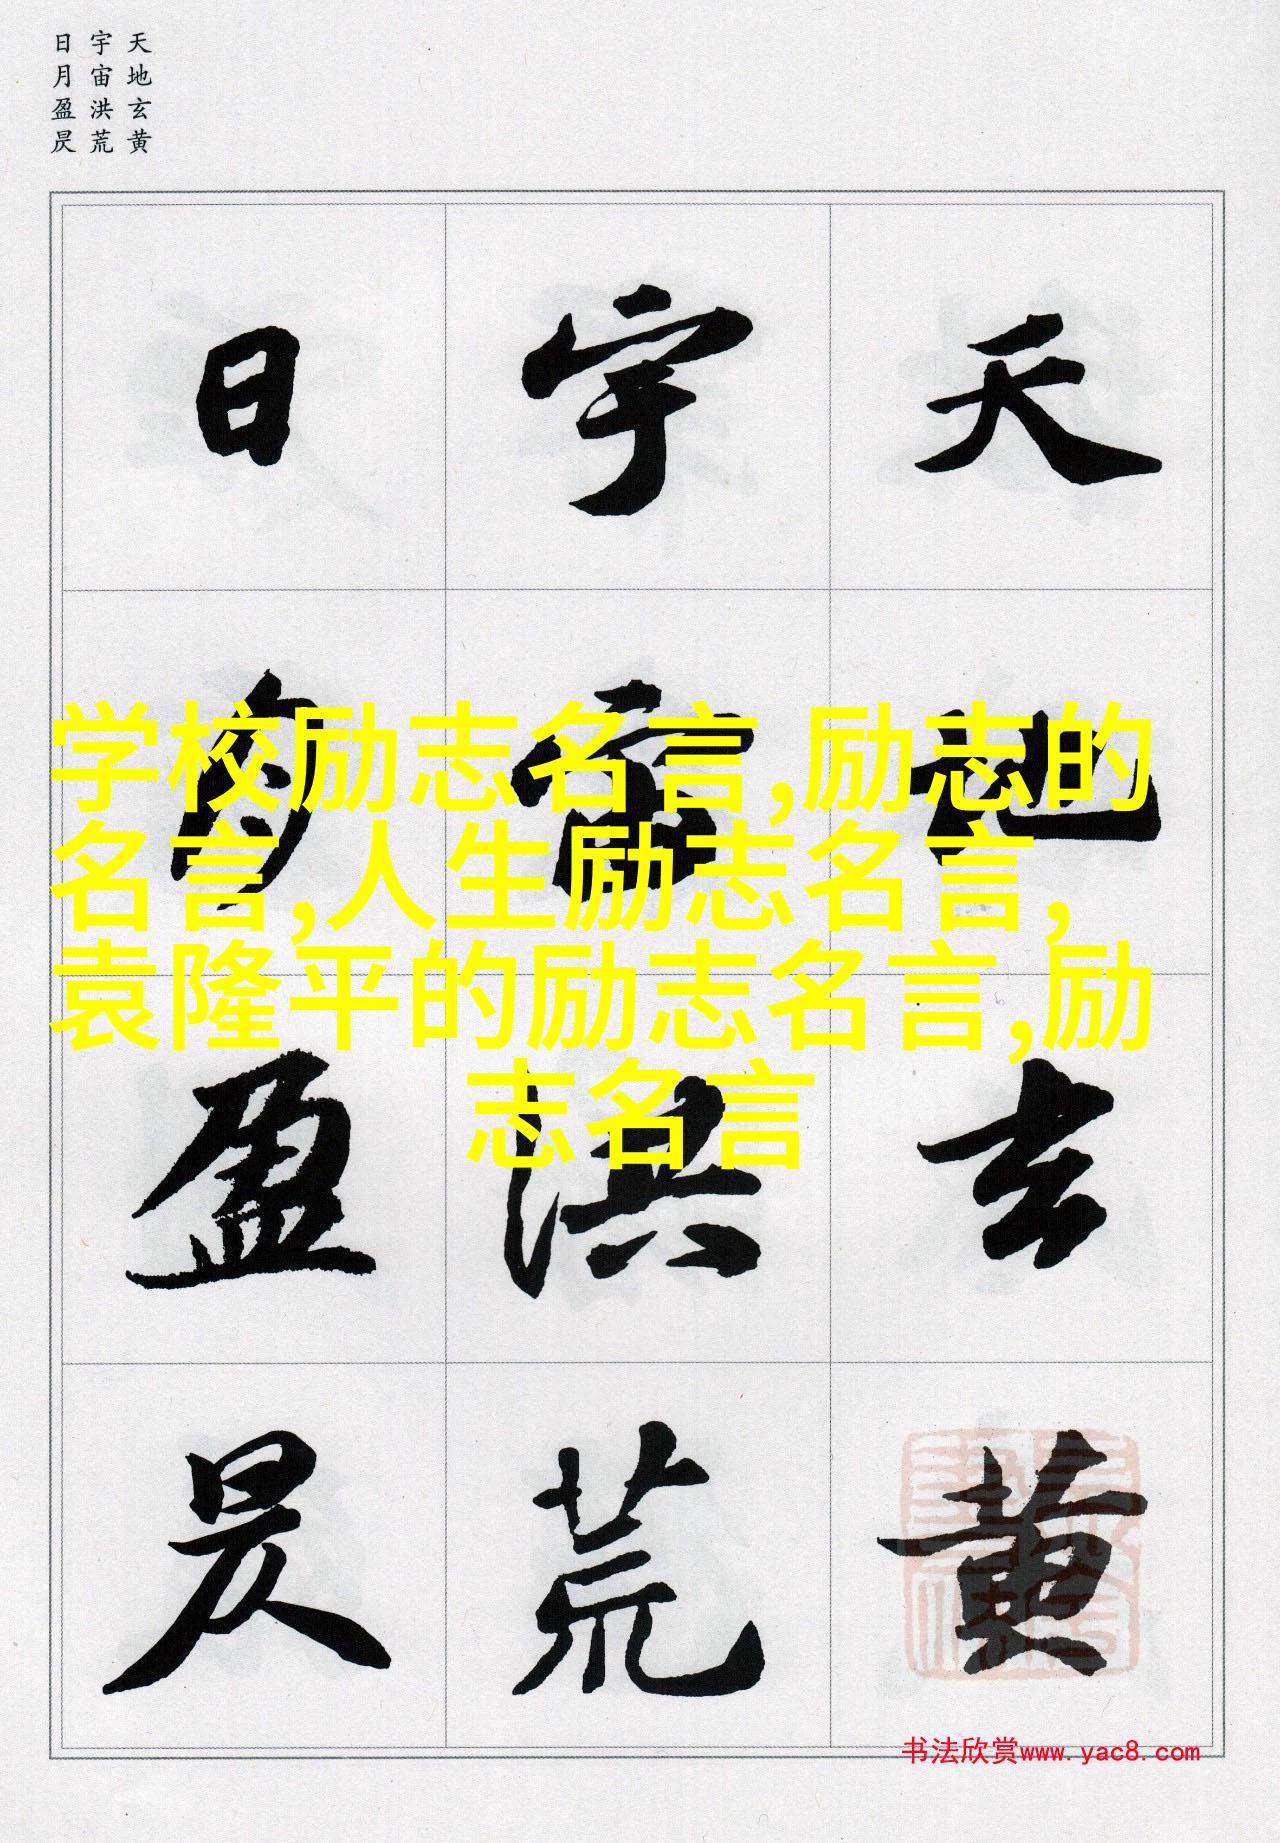 天地玄黄
宇宙洪荒
日月盈昃
天地玄黄
宇宙洪荒
日月盈昃
学校励志名言,励志的
名言,人生励志名言,
袁隆平的励志名言,励
志名言
书法欣赏www.yac8.com